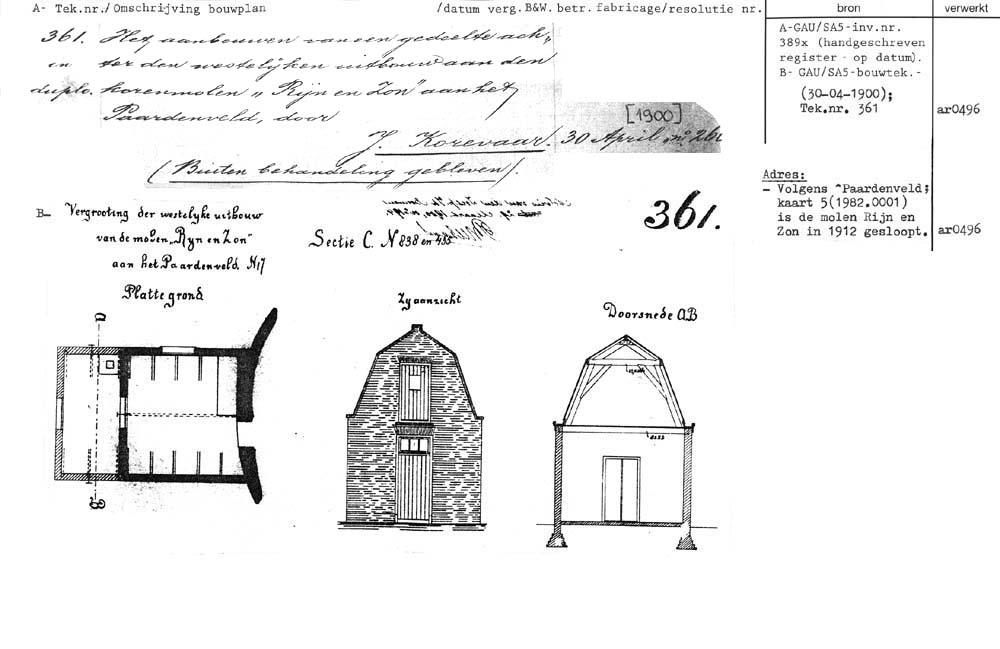 A- Tek.nr./ Omschrijving bouwplan /datum verg.B&W. betr. fabricage/resolutie nr.
bron
verwerkt
361. Het aanbouwen van een gedeelte ach-
in ter den westelijken uitbouw aan den
duplo. korenmolen „Rijn en Zon" aan het
Paardenveld, door
[1900]
J. Korevaar. 30 April no 26
(Buiten behandeling gebleven).
A-GAU/SA5-inv.nr.
389x (handgeschreven
register - op datum).
B- GAU/SA5-bouwtek.-
(30-04-1900);
Tek.nr. 361
ar0496
Adres:
- Volgens "Paardenveld;
kaart 5(1982.0001)
is de molen Rijn en
Zon in 1912 gesloopt.
ar0496
B- Vergrooting der westelyke uitbouw
van de molen „Ryn en Zon"
aan het Paardenveld. N17
Sectie C. N 838 en
361.
Platte grond
Zyaanzicht
Doorsnede AB
A
B